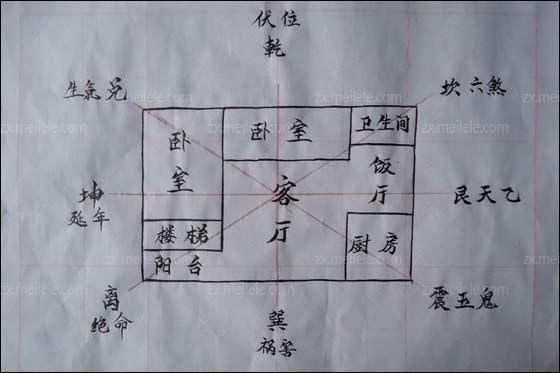 伏位
乾
生氣 兑
坎 六煞
zx.meilele.com
zx.meilele.com
zx.meilele.com
卧室
卧室
卫生间
饭厅
坤
延年
客厅
艮天乙
楼梯
厨房
阳台
zx.meilele.com
zx.meilele.com
zx.meilele.com
离
绝命
巽
祸害
震五鬼